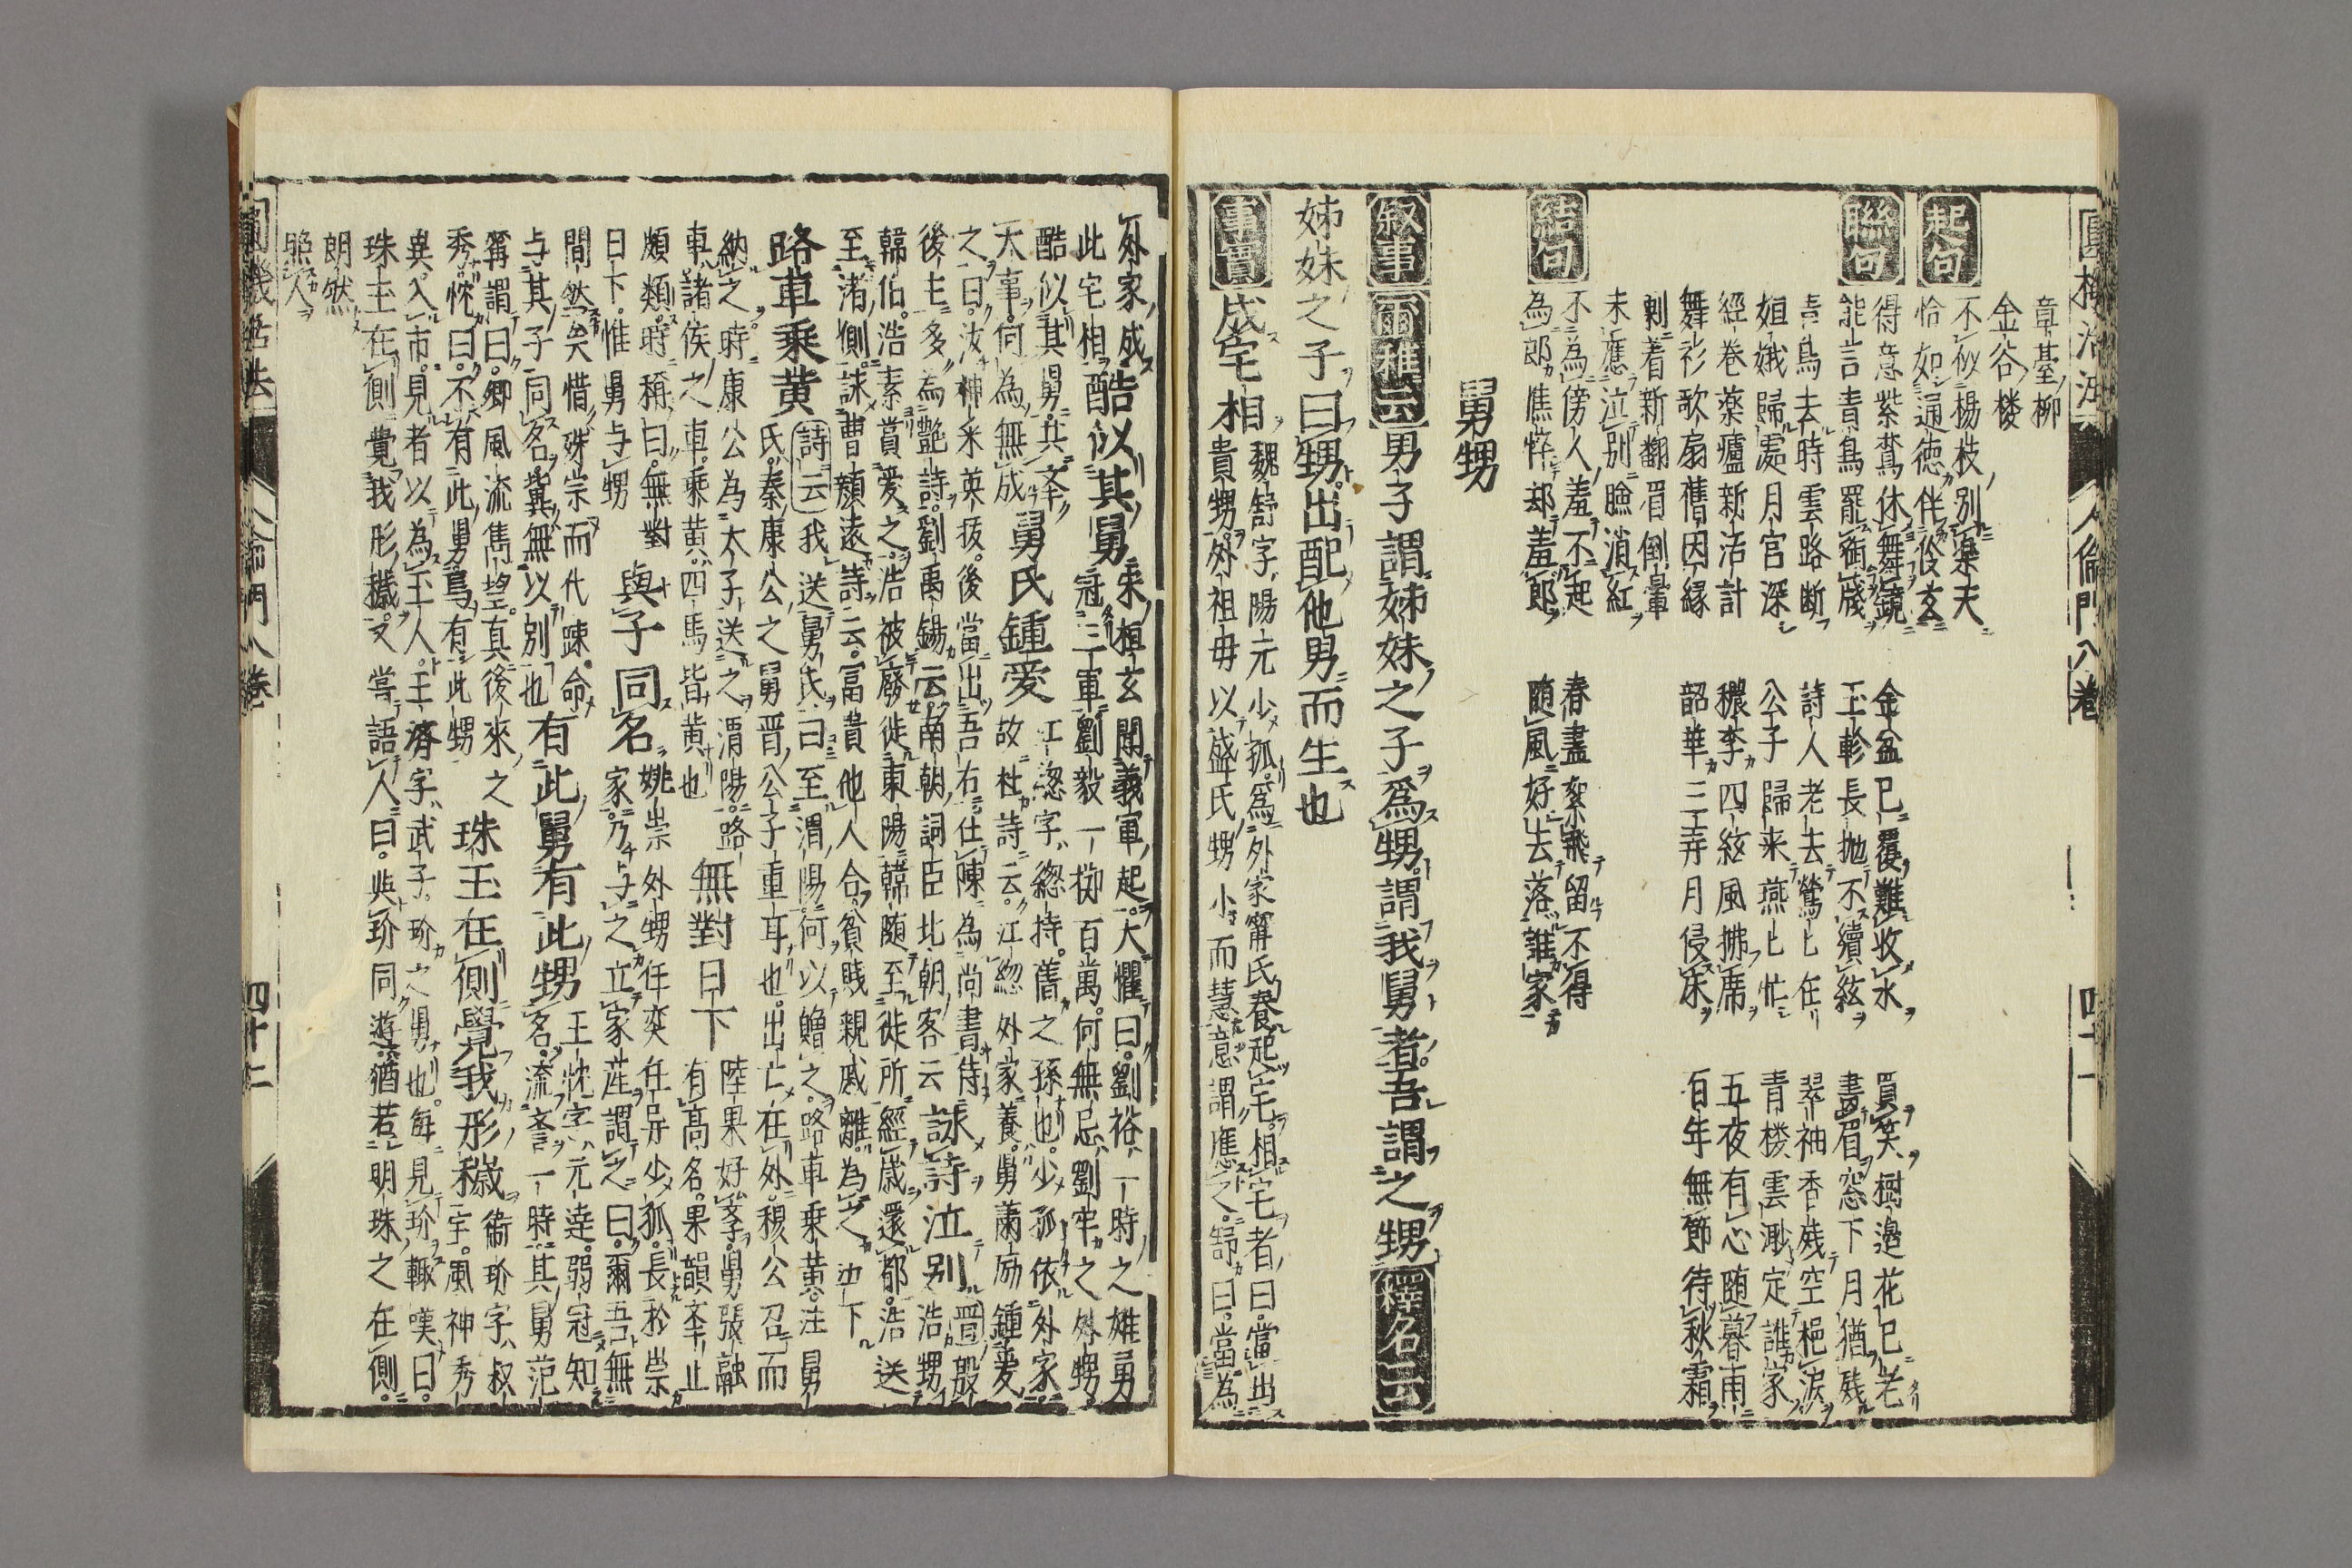 圓機活法 人倫門八卷 四十一
章臺柳
金谷楼
起句 不似楊枝別楽天
恰如通徳伴伶玄
聯句 得意紫鸞休舞鏡 金盆已覆難收水 買笑樹邉花已老
能言青鳥罷銜牋 玉軫長抛不續絃 畫眉窓下月猶残
青鳥去時雲路断 詩人老去鶯〻在 翠袖香残空挹涙
姮娥歸處月宮深 公子歸来燕〻忙 青楼雲渺定誰家
經卷薬爐新活計 穠李四絃風拂席 五夜有心随暮雨
舞衫歌扇舊因縁 韶華三弄月侵床 百年無節待秋霜
剰着新翻眉倒暈
未應泣別臉消紅
結句 不為傍人羞不起 春盡絮飛留不得
為郎憔悴却羞郎 随風好去落誰家
舅甥
叙事 爾雅云男子謂姊妹之子爲甥謂我舅者吾謂之甥釋名云
姊妹之子曰甥出配他男而生也
事實 成宅相 魏舒字陽元少孤爲外家甯氏養起宅相宅者曰當出
貴甥外祖母以盛氏甥小而慧意謂應之舒曰當為
外家成 酷似其舅 宋桓玄聞義軍起大懼曰劉裕一時之雄勇
此宅相 冠三軍劉毅一擲百萬何無忌劉牢之外甥
酷似其舅共挙 舅氏鍾愛 江惣字緫持舊之孫也少孤依外家
大事何為無成 故杜詩云江緫外家養舅蕭励鍾愛
之曰汝神采英抜後當出吾右仕陳為尚書侍 詠詩泣別 晋殷
後主多為艶詩劉禹錫云南朝詞臣北朝客云 浩甥
韓伯浩素賞愛之浩被廢徙東陽韓随至徙所經歳還都浩送
至渚側詠曹顔遠詩云富貴他人合貧賎親戚離為之泣下
路車乘黄 詩云我送舅氏曰至渭陽何以贈之路車乗黄注舅
氏秦康公之舅晋公子重耳也出亡在外穆公召而
納之時康公為太子送之渭陽路 無對日下 陸果好学舅張融
車諸侯之車乗黄四馬皆黄也 有髙名果韻挙止
頗類時稱曰無對 與子同名 姚崇外甥任奕任异少孤長於崇
日下惟舅与甥 家乃与子之立家産謂之曰爾吾無
間然矣惜殊宗而代踈命 有此舅有此甥 王忱字元逹弱冠知
与其子同名冀無以別也 名流斎一時其舅范
甯謂曰卿風流雋望真後來之 珠玉在側覺我形穢 衞玠字叔
秀忱曰不有此舅焉有此甥 宝風神秀
異入市見者以為玉人王濟字武子玠之舅也毎見玠輙嘆曰
珠玉在側覺我形穢又嘗語人曰与玠同遊猶若明珠之在側
朗然
照人
圓機活法 人倫門八卷 四十二